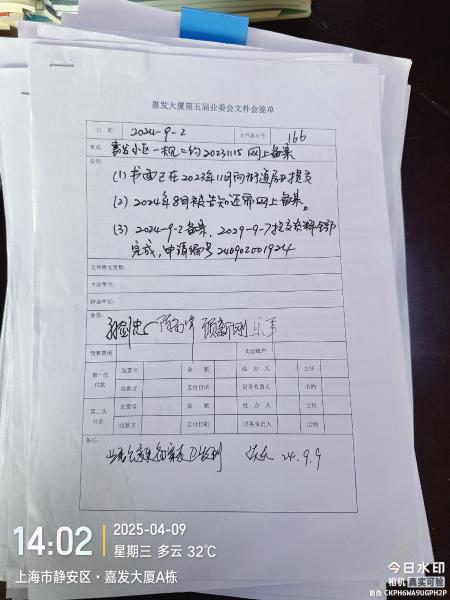 嘉发大厦第五届业委会文件会签单
日 期 2024-9-2 文件流水号 166
事项: 嘉发小区一机二约20231115网上备案
说明:
(1) 书面已在2023年11月向街道房办提交
(2) 2024年8月被告知还需网上备案。
(3) 2024-9-2备案, 2024-9-7提交资料全部
完成, 申请编号240902001924
文件原文页数:
主送单位:
抄送单位:
会签:
预算费用 支出账户
第一次付款 发票号 金 额 经 办 人 主任
收款方 支付日期 财务负责人 出纳
第二次付款 发票号 金 额 经 办 人 主任
收款方 支付日期 财务负责人 出纳
备注:
24.9.9
14:02 2025-04-09
星期三 多云 32℃
上海市静安区·嘉发大厦A栋
今日水印
相机 真实可验
防伪 CKPH6WA9UGPH2P